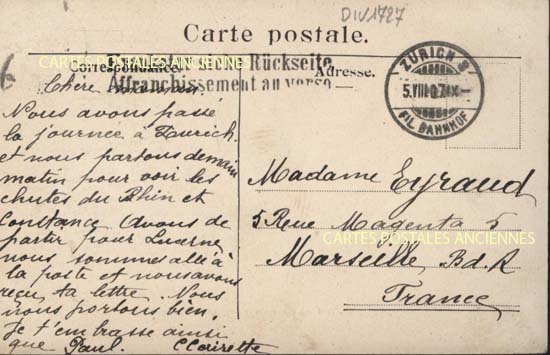 DIV1727
Carte postale.
CARTES POSTALES ANCIENNES
Rückseite
Correspondance.
Adresse.
Affranchissement au verso
ZÜRICH 8
5.VIII.07.IX-
FIL. BAHNHOF
Chère
Nous avons passé
la journée à Zurich
et nous partons demain
matin pour voir les
chutes du Rhin et
Constance Avons de
partir pour Luzerne
nous sommes allé à
la poste et nous avons
reçu ta lettre. Nous
nous portons bien,
Je t'embrasse ainsi
que Paul. Clairette
Madame Eyraud
5 Rue Magenta 5
CARTES POSTALES ANCIENNES
Marseille, Bd. R
France